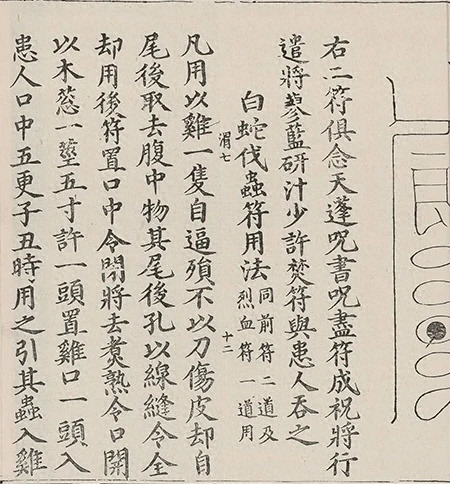 右二符俱念天蓬呪書呪盡符成祝將行
遣將蓼藍研汁少許焚符與患人吞之
白蛇伐蟲符用法同前符二道及烈血符一道用
渭七
十二
凡用以雞一隻自逼殞不以刀傷皮却自
尾後取去腹中物其尾後孔以線縫令全
却用後符置口中令閉將去煮熟令口開
以木蔥一莖五寸許一頭置雞口一頭入
患人口中五更子丑時用之引其蟲入雞